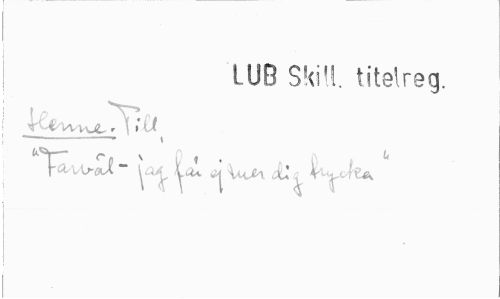 LUB Skill. titelreg.
Henne. Till,
"Farväl - jag får ej mer dig trycka"